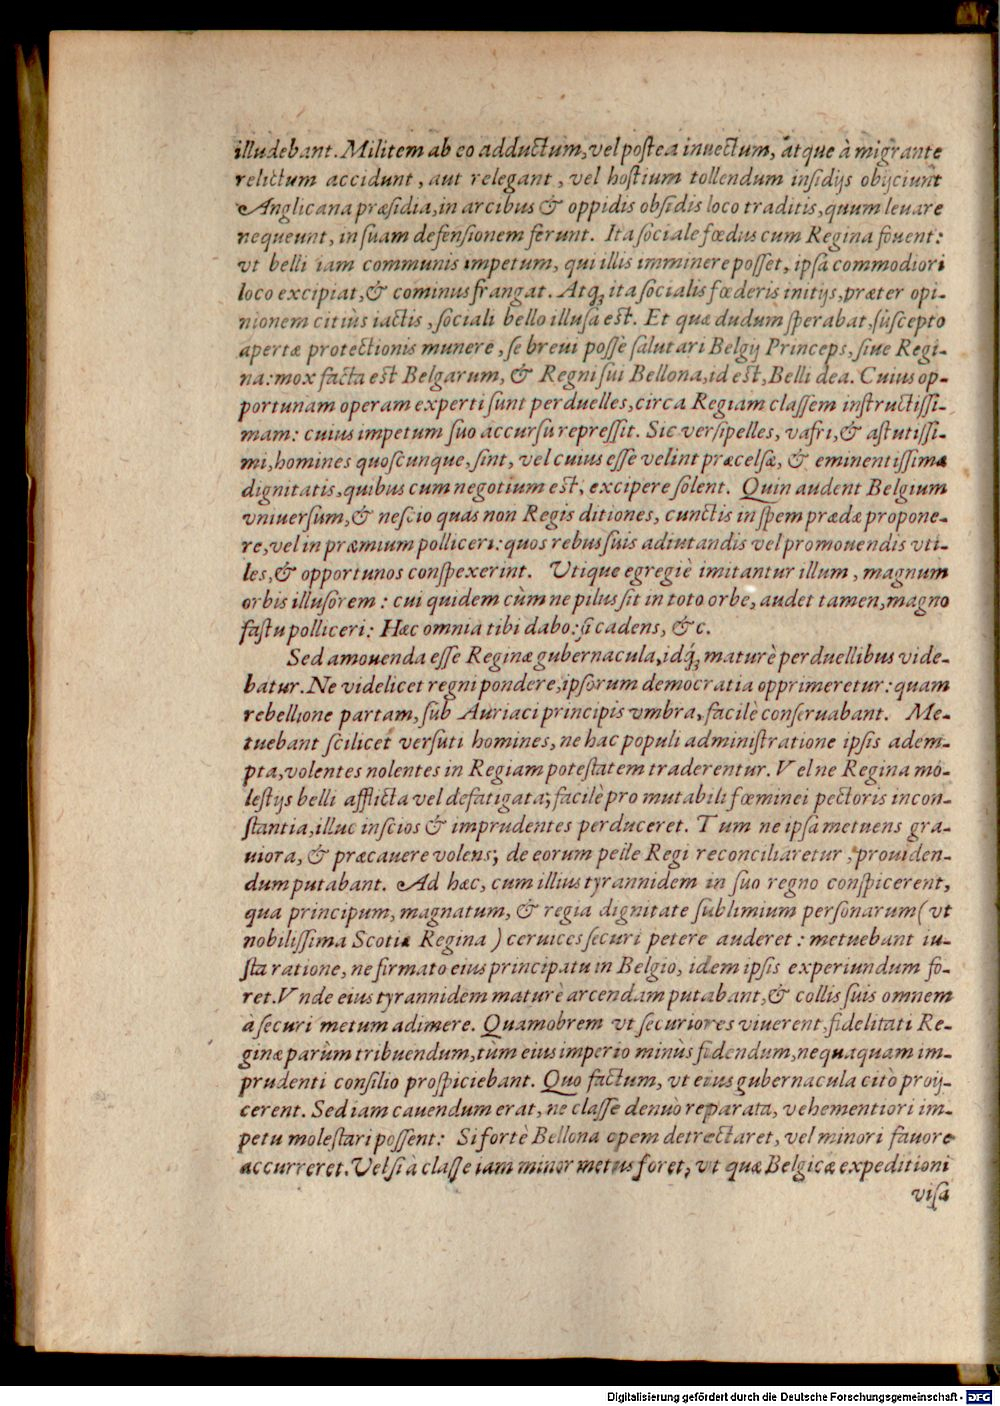 illudebant. Militem ab eo adductum, vel postea inuectum, atque à migrante
relictum accidunt, aut relegant, vel hostium tollendum insidijs obijciunt
Anglicana præsidia, in arcibus & oppidis obsidis loco traditis, quum leuare
nequeunt, in suam defensionem ferunt. Ita sociale fœdus cum Regina fouent:
vt belli iam communis impetum, qui illis imminere posset, ipsa commodiori
loco excipiat, & cominus frangat. Atq; ita socialis fœderis initijs, præter opi-
nionem citiùs iactis, sociali bello illusa est. Et quæ dudum sperabat, suscepto
apertæ protectionis munere, se breui posse salutari Belgij Princeps, siue Regi-
na: mox facta est Belgarum, & Regni sui Bellona, id est, Belli dea. Cuius op-
portunam operam experti sunt perduelles, circa Regiam classem instructissi-
mam: cuius impetum suo accursu repressit. Sic versipelles, vafri, & astutissi-
mi, homines quoscunque, sint, vel cuius esse velint præcelsæ, & eminentissimæ
dignitatis, quibus cum negotium est, excipere solent. Quin audent Belgium
vniuersum, & nescio quas non Regis ditiones, cunctis in spem prædæ propone-
re, vel in præmium polliceri: quos rebus suis adiutandis vel promouendis vti-
les, & opportunos conspexerint. Utique egregiè imitantur illum, magnum
orbis illusorem: cui quidem cùm ne pilus sit in toto orbe, audet tamen, magno
fastu polliceri: Hæc omnia tibi dabo: si cadens, &c.
Sed amouenda esse Reginæ gubernacula, idq; maturè perduellibus vide-
batur. Ne videlicet regni pondere, ipsorum democratia opprimeretur: quam
rebellione partam, sub Auriaci principis vmbra, facilè conseruabant. Me-
tuebant scilicet versuti homines, ne hac populi administratione ipsis adem-
pta, volentes nolentes in Regiam potestatem traderentur. Vel ne Regina mo-
lestijs belli afflicta vel defatigata; facilè pro mutabili fœminei pectoris incon-
stantia, illuc inscios & imprudentes perduceret. Tum ne ipsa metuens gra-
uiora, & præcauere volens; de eorum pelle Regi reconciliaretur, prouiden-
dum putabant. Ad hæc, cum illius tyrannidem in suo regno conspicerent,
qua principum, magnatum, & regia dignitate sublimium personarum (vt
nobilissima Scotiæ Regina) ceruices securi petere auderet: metuebant iu-
sta ratione, ne firmato eius principatu in Belgio, idem ipsis experiundum fo-
ret. Vnde eius tyrannidem maturè arcendam putabant, & collis suis omnem
à securi metum adimere. Quamobrem vt securiores viuerent, fidelitati Re-
ginæ parùm tribuendum, tùm eius imperio minùs fidendum, nequaquam im-
prudenti consilio prospiciebant. Quo factum, vt eius gubernacula citò proij-
cerent. Sed iam cauendum erat, ne classe denuò reparata, vehementiori im-
petu molestari possent: Si fortè Bellona opem detrectaret, vel minori fauore
accurreret. Vel si à classe iam minor metus foret, vt quæ Belgicæ expeditioni
visa
Digitalisierung gefördert durch die Deutsche Forschungsgemeinschaft - DFG